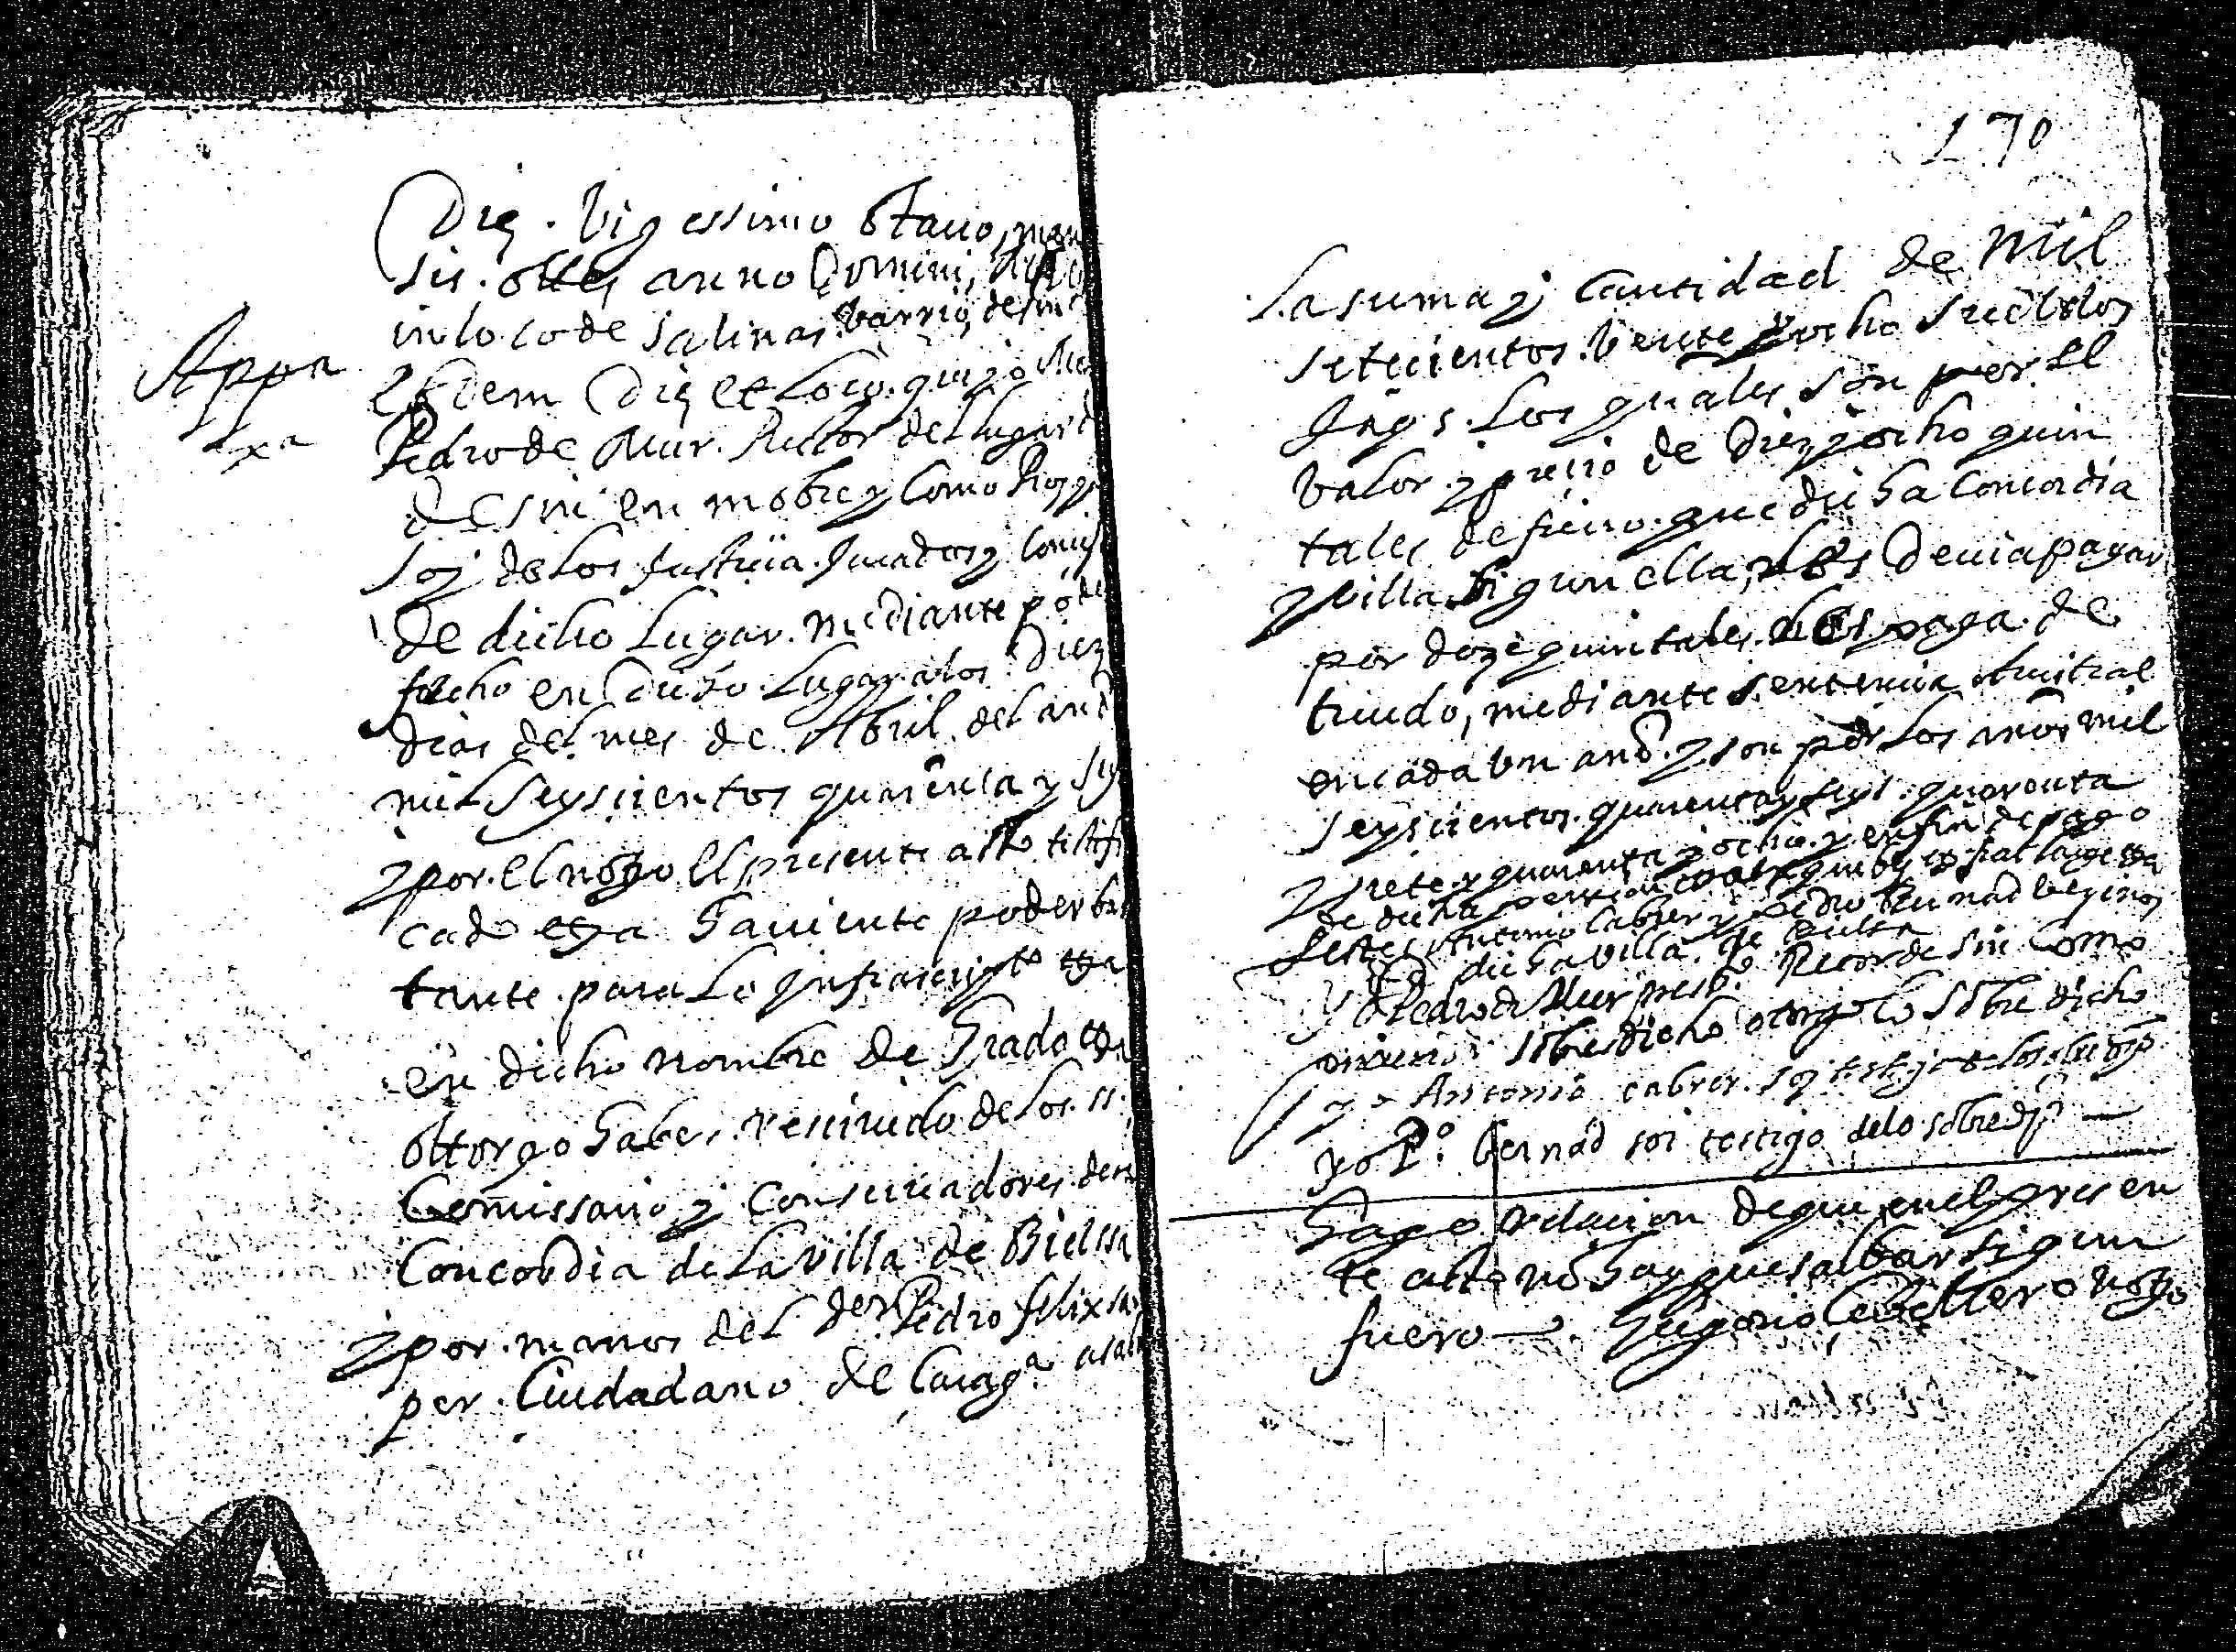 Die. Vigessimo Otauo, men
sis. octes anno Domini,
in loco de salinas. barrio, de sin
Appoa
Eisdem Die et Loco. que yo Mos
xª
Pedro de Mur. Rector del lugar d
de sin en nombre y Como Pro
soy de Los Justicia. Jurados y Concejo
de dicho Lugar. mediante poder
fecho en Dicho. Lugar a los Diez
dias del mes de Abril. del año
mil Seyscientos quarenta y
y por. el nogo El presente acto testifi
cado etza haviente poder bas
tante. para Lo Infrascripto etza
en dicho nombre de Grado etza
ottorgo haber. reciuido de los. ss.
Comissario y Conseruadores. de
Concordia de La villa de Bielssa
y por. manos del Pedro felix
per. Ciudadano de Caragª
170
La suma y Cantidad de Mil
setecientos. Veinte y ocho sueldos
Jaqs. Los quales son por El
Valor. y precio de Diez y ocho quin
tales de fierro. que dicha Concordia
y villa sigun ella, les Deuia pagar
por doze quintales. les paga. de
treudo, mediante sentencia Arbitral
en cada Un año. y son por Los años mil
seyscientos. quarenta y seys. quarenta
y siete. y quarenta y ocho. y en fin de pago
de dicha pension ex quibus fiat large etza
Testes Antonio Cabrer y Pedro Bernad Vezinos
de dicha villa. de bielsa
Yo Pedro de Mur presbº Retor de sin Como
sobredicho otorgo lo sobre dicho
yo Antonio cabrer. soy testigo de lo sobredhº
yo Pº. Bernad soi testigo de lo sobredhº
Hago relacion de que en el presen
te acto no hay que salbar sigun
fuero. Caballero nogo